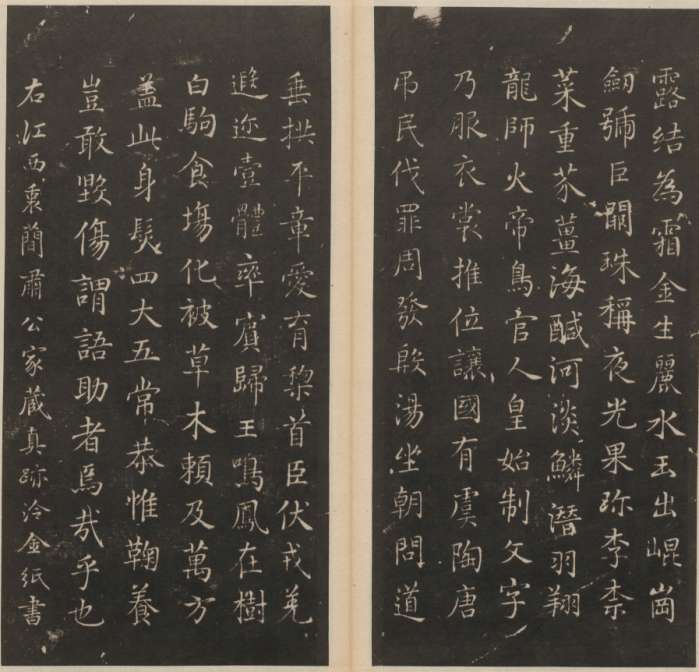 露結為霜金生麗水玉出崐崗
劒號巨闕珠稱夜光果珎李柰
菜重芥薑海醎河淡鱗潛羽翔
龍師火帝鳥官人皇始制文字
乃服衣裳推位讓國有虞陶唐
吊民伐罪周發殷湯坐朝問道
垂拱平章愛育黎首臣伏戎羌
遐迩壹體率賓歸王鳴鳳在樹
白駒食塲化被草木賴及萬方
盖此身髮四大五常恭惟鞠養
豈敢毀傷謂語助者焉哉乎也
右江西簡肅公家蔵真跡冷金紙書